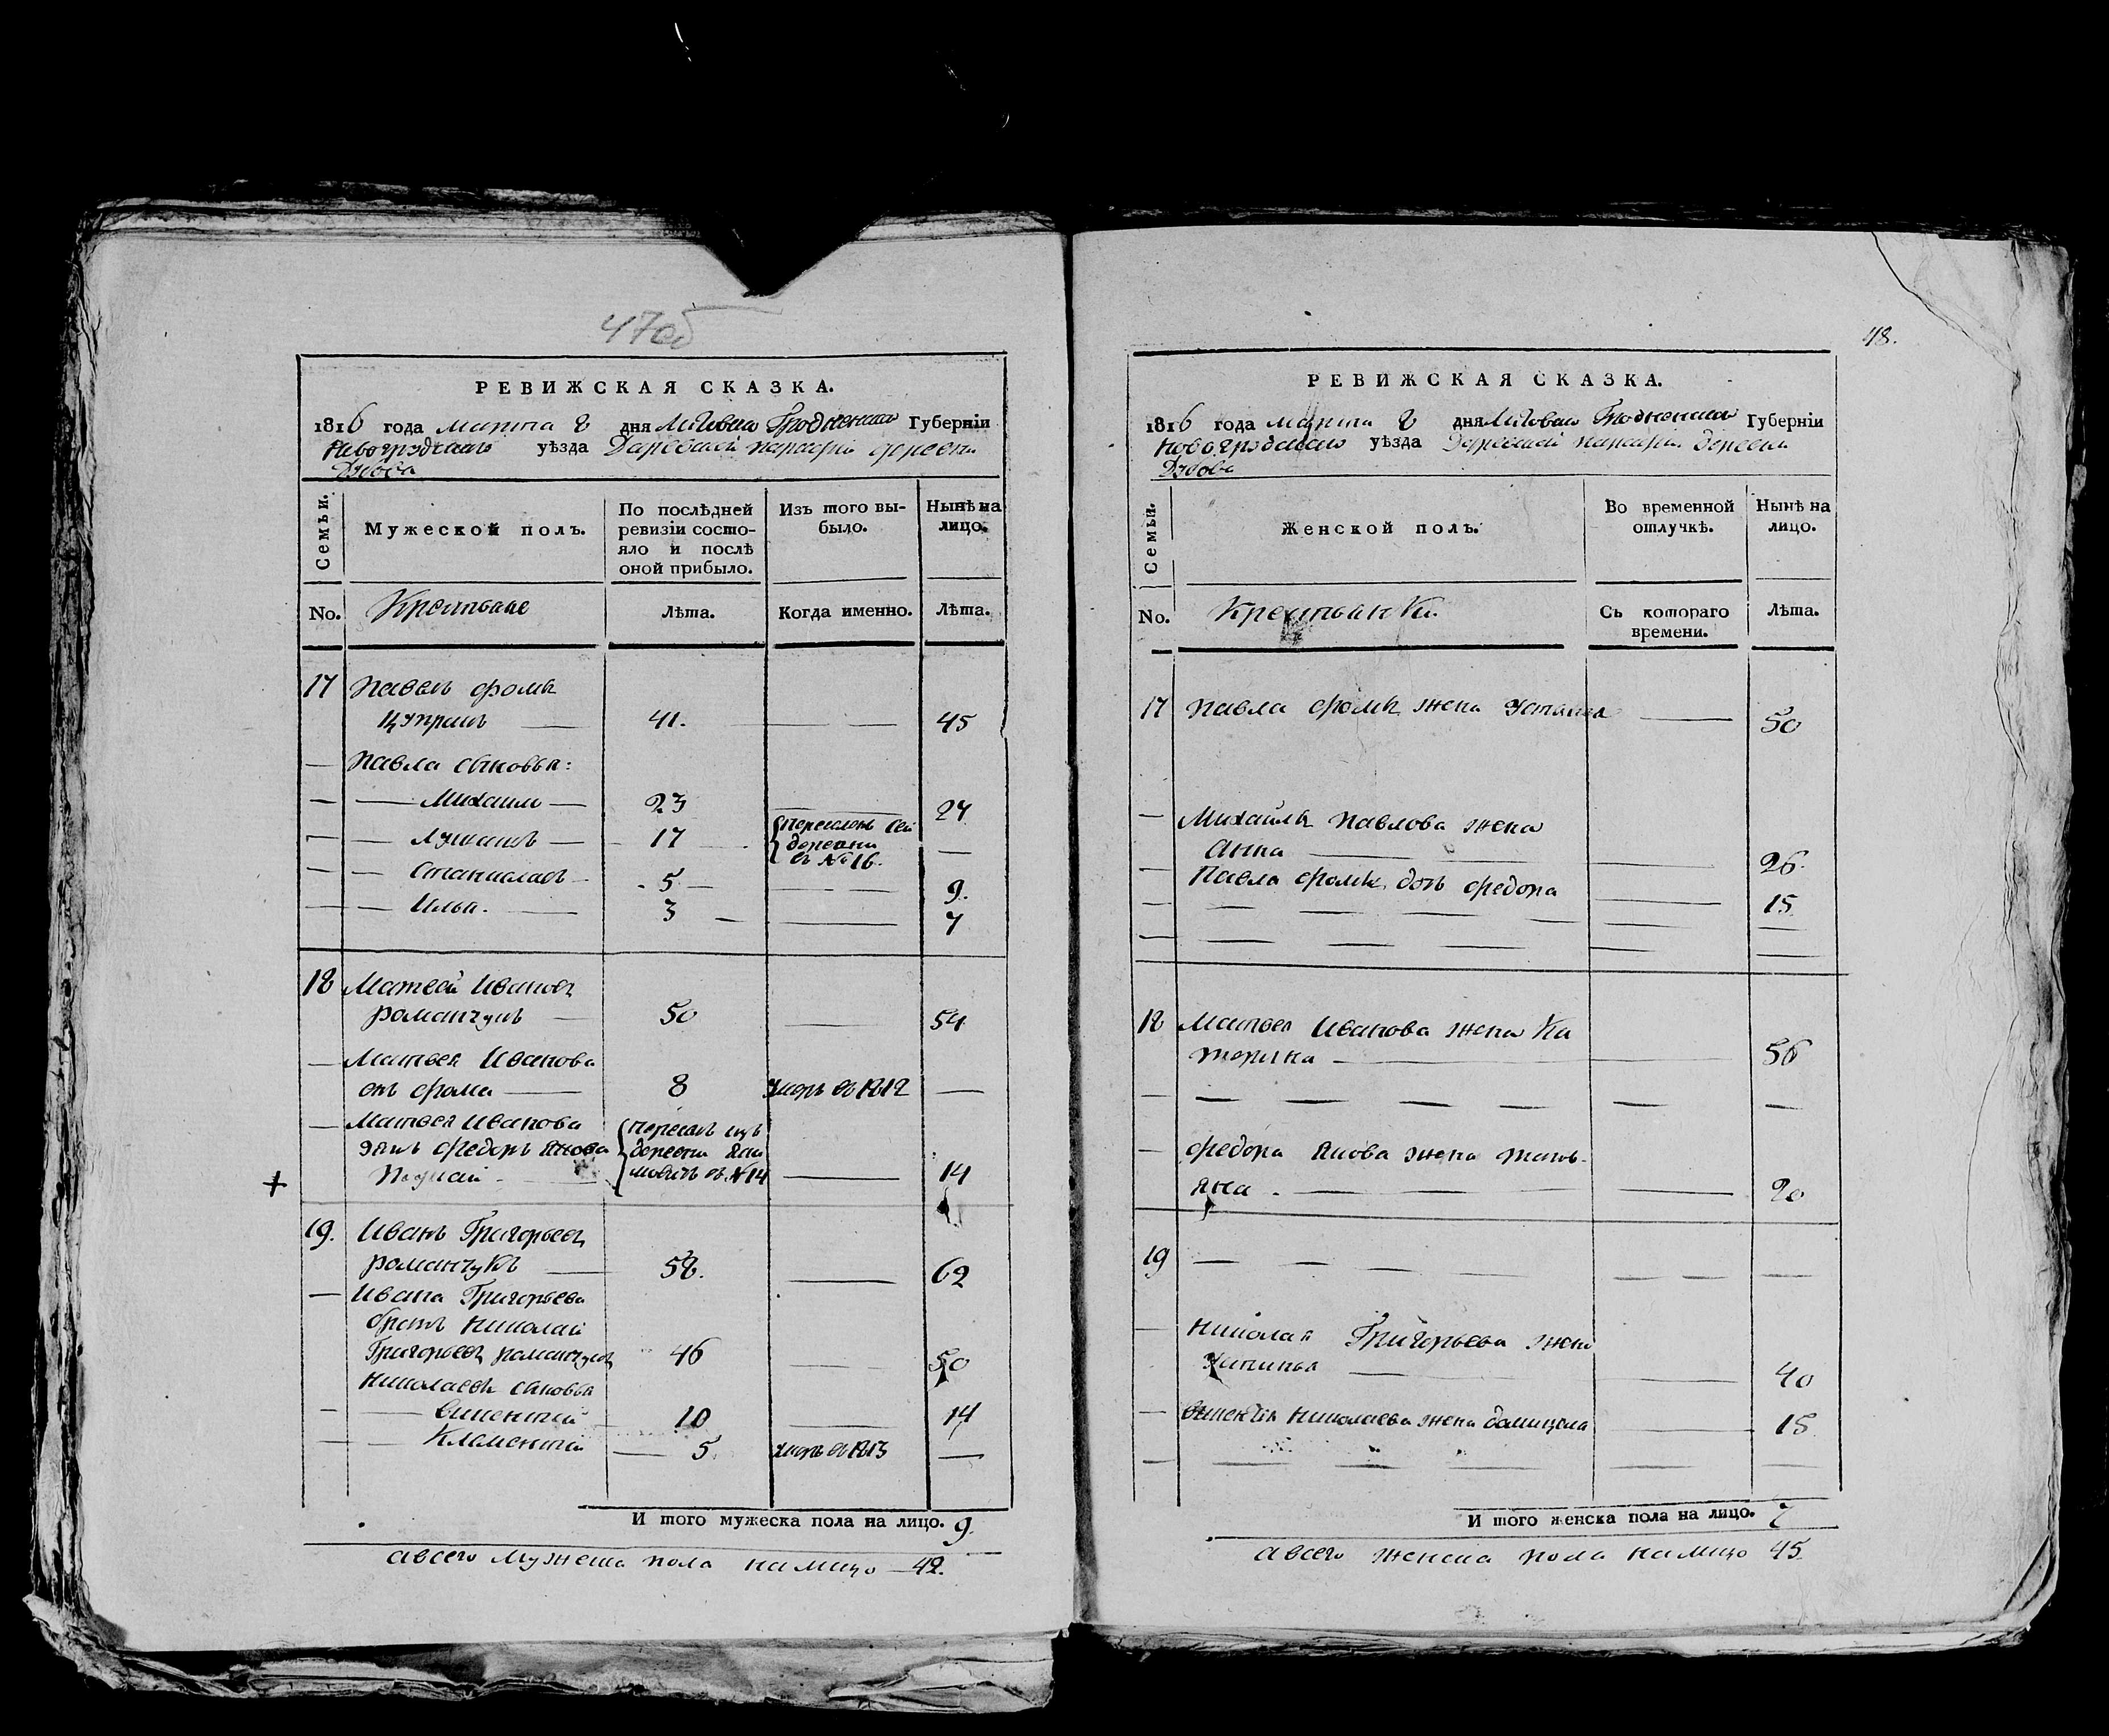 47об
РЕВИЖСКАЯ СКАЗКА.
1816 года марта 8 дня Литовско Гродненской Губернiи
Новогрудскаго уѣзда Даревской парафiи деревни
Дубова
Семьи.
Мужеской полъ.
По послѣдней ревизiи состо-яло и послѣ оной прибыло.
Изъ того вы-было.
Нынѣ на лицо.
No.
Крестьяне
Лѣта.
Когда именно.
Лѣта.
17 Павелъ Фомы
41. 45
Павла сыновья:
Михаилъ 23 27
17 Переведенъ сей
деревни
въ № 16.
Станиславъ 5 9.
Илья 3 7
18 Матвей Ивановъ
Романчукъ 50 54
Матвея Иванова
сынъ Фома 8 умеръ въ 1812
Матвея Иванова
зять Федоръ Янова
деревни
въ № 14 14
19. Иванъ Григорьевъ
Романчукъ 58. 62
Ивана Григорьева
братъ Николай
Григорьевъ Романчукъ 46 50
Николаевы сыновья
Викентий 10 14
Клементий 5. умеръ въ 1813
И того мужеска пола на лицо. 9.
а всего мужеска пола на лицо 42.
48.
РЕВИЖСКАЯ СКАЗКА.
1816 года марта 8 дня Литовско Гродненской Губернiи
Новогрудскаго уѣзда Даревской парафiи деревни
Дубова
Семьи.
Женской полъ.
Во временной отлучкѣ.
Нынѣ на лицо.
No.
Крестьянки.
Съ котораго времени.
Лѣта.
17 Павла Фомы жена 50
Михайлы Павлова жена
Анна 26.
Павла Фомы дочь Федора 15
18 Матвея Иванова жена Ка
терина 56
Федора Янова жена Тать-
яна. 20
19
Николая Григорьева жена
40
Викентiя Николаева жена Домицела 15
И того женска пола на лицо. 7
а всего женска пола на лицо 45.